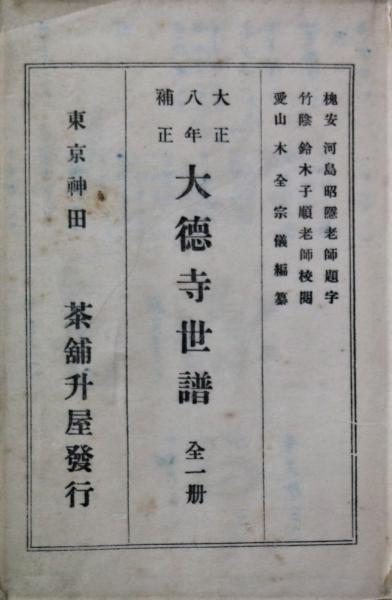 槐安 河島昭隱老師題字
竹陰 鈴木子順老師校閲
愛山 木全宗儀編纂
大正八年補正
大德寺世譜 全一册
東京神田 茶舗升屋發行